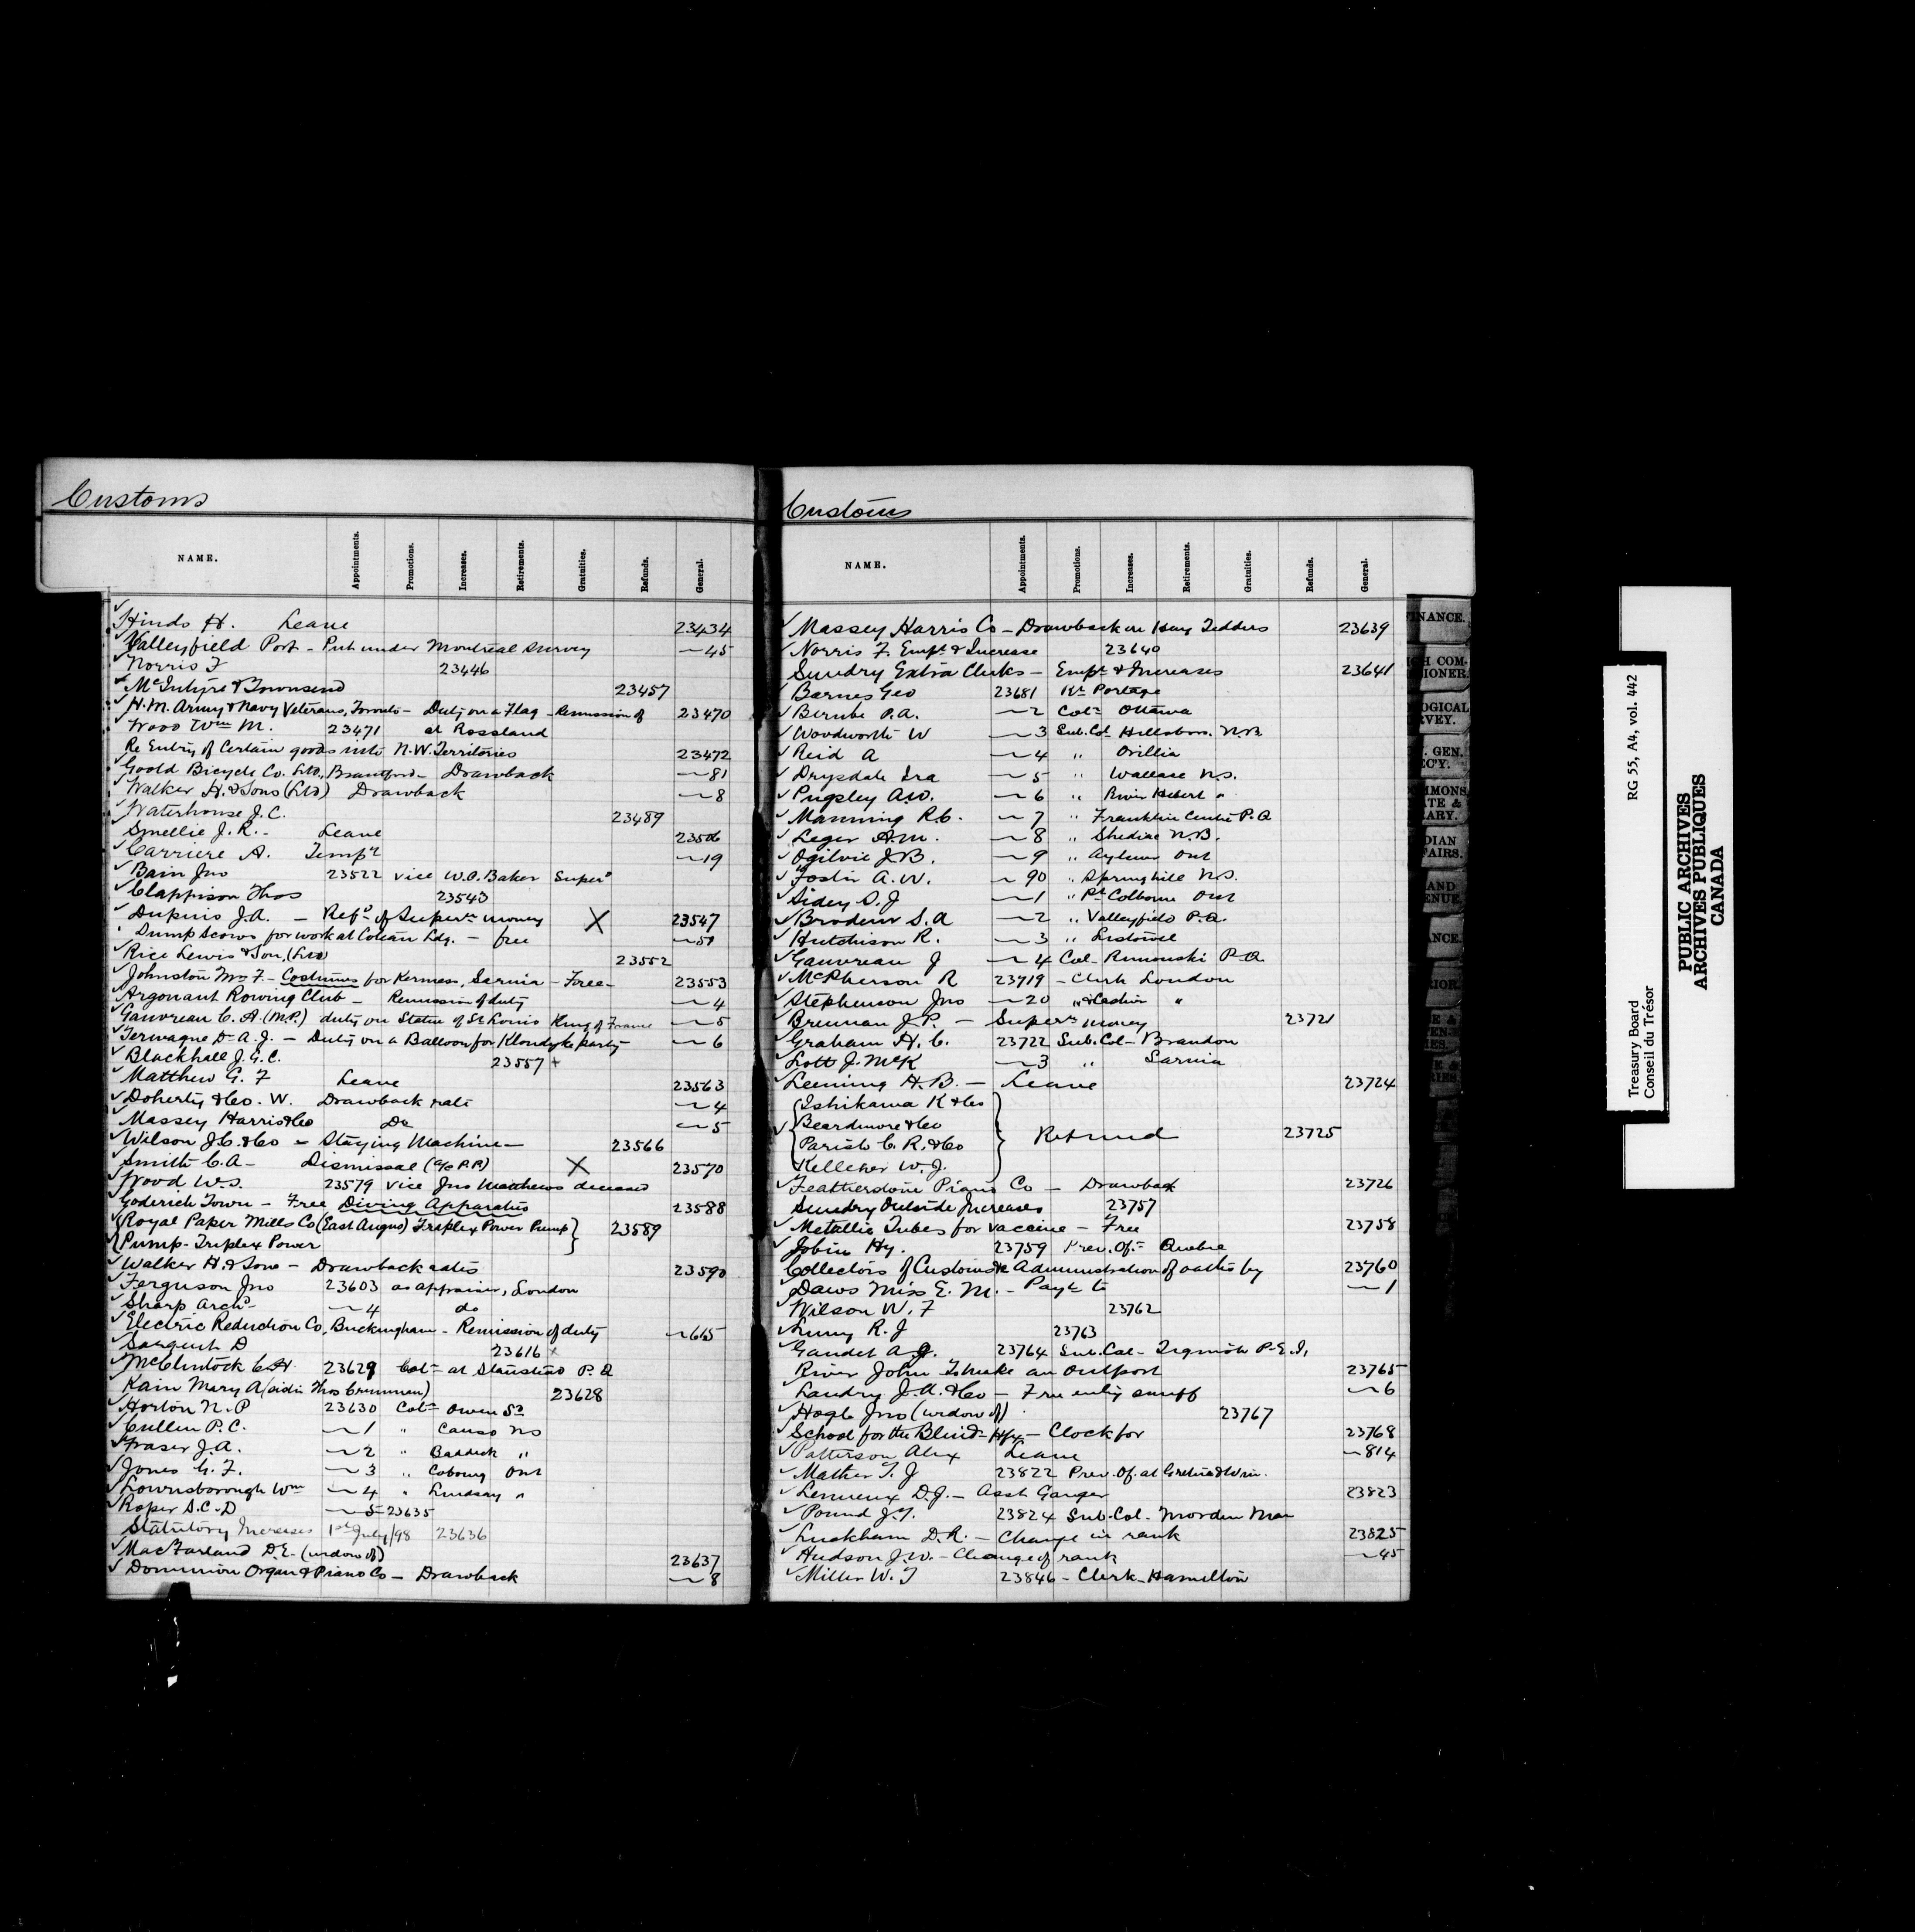 Customs
NAME. Appointments. Promotions. Increases. Retirements. Gratuities. Refunds. General.
Hinds H. Leave 23434
Valleyfield Port - Put under Montreal Survey —45
Norris F 23446
McIntyre & Townsend 23457
H.M. Army & Navy Veterans, Toronto - Duty on a Flag - Remission of 23470
Wood Wm M. 23471 at Rossland
Re Entry of Certain goods into N.W. Territories 23472
Goold Bicycle Co. Ltd, Brantford - Drawback —81
Walker H. & Sons (Ltd) Drawback —8
Waterhouse J.C. 23489
Smellie J.R. - Leave 23506
Carriere A. Tempy —19
Bain Jno 23522 vice W.O. Baker Superd
Clappison Thos 23543
Dupuis J.A. - Refd of Supern money X 23547
Dump Scows for work at Coteau Ldg. - free —51
Rice Lewis & Son, (Ltd) 23552
Johnston Mrs F - Costumes for Kermess, Sarnia - Free - 23553
Argonaut Rowing Club - Remission of duty —4
Gauvreau C.A. (M.P.) duty on Statue of St Louis King of France —5
Terwagne D. A.J. - Duty on a Balloon for Klondyke party —6
Blackhall J.G.C. 23557 +
Matthew G.F Leave 23563
Doherty & Co. W. Drawback rate —4
Massey Harris & Co Do —5
Wilson J.C. & Co - Staying Machine - 23566
Smith C.A - Dismissal (a/c P.P.) X 23570
Wood W.S. 23579 vice Jno Matthews deceased
Goderich Town - Free Diving Apparatus 23588
Royal Paper Mills Co (East Angus) Triplex Power Pump 23589
Pump - Triplex Power
Walker H. & Sons - Drawback rates 23590
Ferguson Jno 23603 as appraiser, London
Sharp Archd —4 do
Electric Reduction Co, Buckingham - Remission of duty —615
Sargent D 23616 x
McClintock C.H. 23629 Colr at Stanstead P.Q
Kain Mary A 23628
Horton N.P 23630 Colr Owen Sd
Cullen P.C. —1 " Canso NS
Fraser J.A. —2 " Baddeck "
Jones G.F. —3 " Cobourg Ont
Lownsborough Wm —4 " Lindsay "
Roper S.C.D —5 23635
Statutory Increases 1st July/98 23636
MacFarland D.E. (widow of) 23637
Dominion Organ & Piano Co - Drawback —8
Customs
NAME. Appointments. Promotions. Increases. Retirements. Gratuities. Refunds. General.
Massey Harris Co - Drawback on Hay Tedders 23639
Norris F. Empt & Increase 23640
Sundry Extra Clerks - Empt & Increases 23641
Barnes Geo 23681 Rt Portage
Berube P.A. —2 Colr Ottawa
Woodworth W —3 Sub. Col Hillsboro. N.B.
Reid A —4 " Orillia
Drysdale Ira —5 " Wallace N.S.
Pugsley A.W. —6 " River Hebert "
Manning R.C. —7 " Franklin Centre P.Q
Leger A.M. —8 " Shediac N.B.
Ogilvie J.B. —9 " Aylmer Ont
Foster A.W. —90 " Springhill N.S.
Sidey S.J —1 " Pt Colborne Ont
Brodeur S.A —2 " Valleyfield P.Q.
Hutchison R. —3 " Listowel
Gauvreau J —4 Col - Rimouski P.Q
McPherson R 23719 - Clerk London
Stephenson Jno —20 " & Cashier "
Brennan J.P. - Supern money 23721
Graham H.C. 23722 Sub. Col - Brandon
Lott J. McK —3 " Sarnia
Leeming H.B. - Leave 23724
Ishikawa K & Co
Beardmore & Co
Parish C.R. & Co
Kelleher W.J.
Refund 23725
Featherstone Piano Co - Drawback 23726
Sundry Outside Increases 23757
Metallic Tubes for vaccine - Free 23758
Jobin Hy. 23759 Prev. Ofr Quebec
Collectors of Customs &c Administration of oaths by 23760
Daws Miss E.M. - Payt to —1
Wilson W.F 23762
R.J 23763
Gaudet A.J. 23764 Sub. Col - Tignish P.E.I.
River John To make an outport 23765
Landry J.A. & Co - Free entry snuff —6
Hagle Jno (widow of) 23767
School for the Blind - Hfx - Clock for 23768
Patterson Alex Leave —814
Mather T.J 23822 Prev. Of. at Gretna
Lemieux D.J. - Asst Gauger 23823
Pound J.T. 23824 Sub. Col - Morden Man
Luckham D.R. - Change in rank 23825
Hudson J.W. - Change of rank —45
Miller W.T 23846 - Clerk - Hamilton
FINANCE.
GH COM-
SIONER.
OGICAL
RVEY.
. GEN.
EC'Y.
OMMONS,
ATE &
RARY.
DIAN
FAIRS.
AND
ENUE.
ANCE.
RIOR.
Treasury Board RG 55, A4, vol. 442
Conseil du Trésor
PUBLIC ARCHIVES
ARCHIVES PUBLIQUES
CANADA